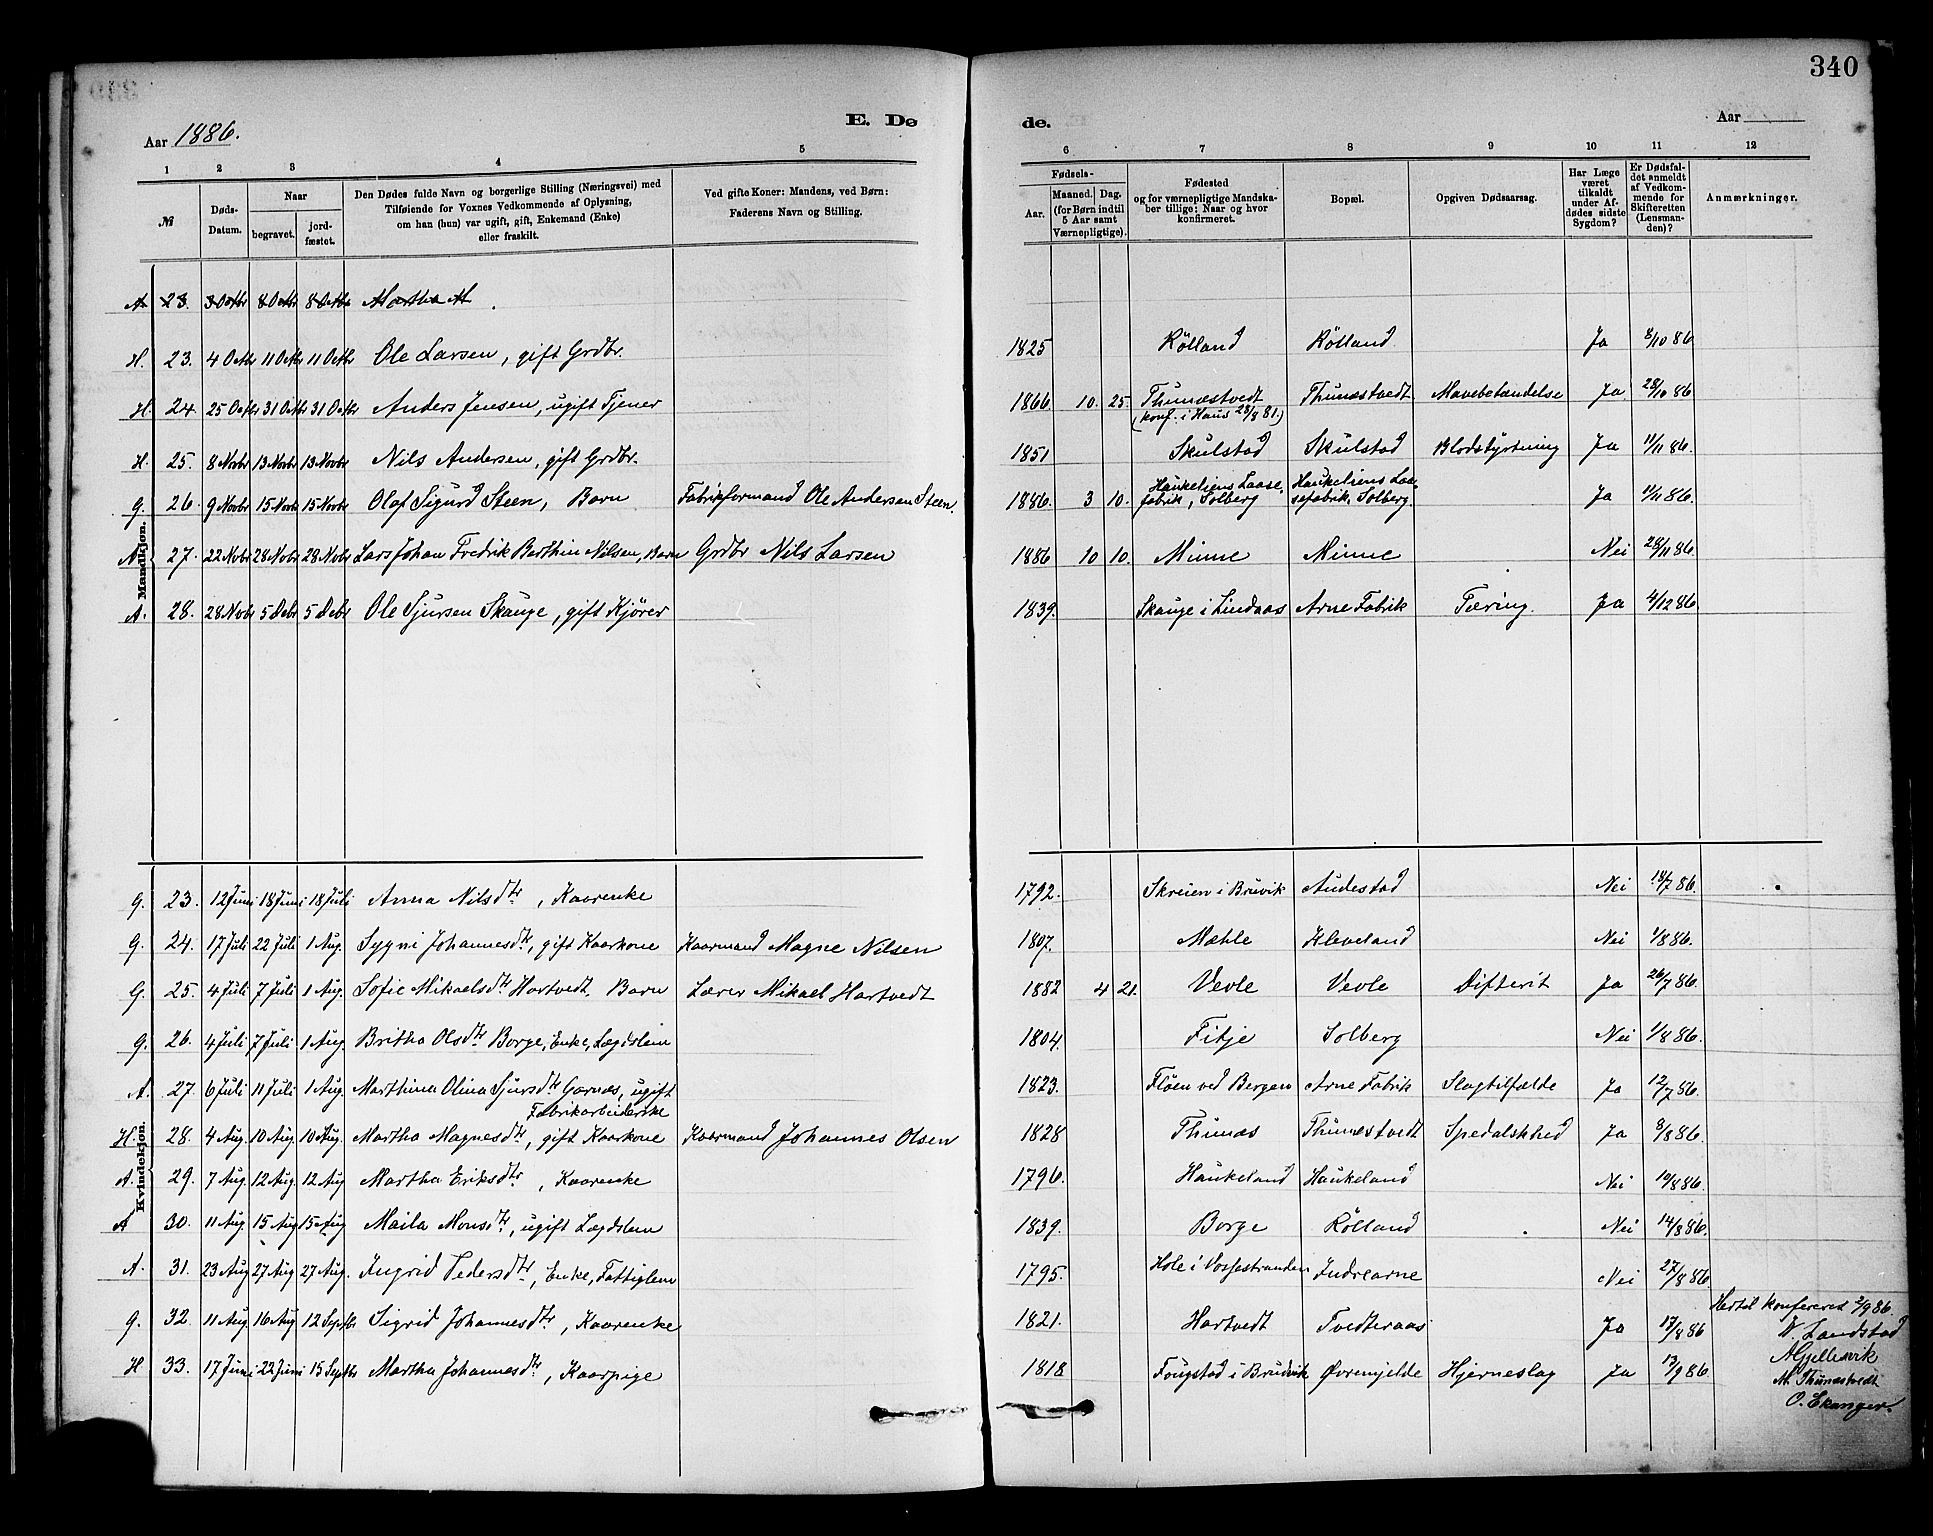 340
Aar 1886. E. Dø de. Aar
1 2 3 4 5 6 7 8 9 10 11 12
№
Døds-Datum.
Naar
begravet.
jord-fæstet.
Den Dødes fulde Navn og borgerlige Stilling (Næringsvei) med
Tilføiende for Voxnes Vedkommende af Oplysning,
om han (hun) var ugift, gift, Enkemand (Enke)
eller fraskilt.
Ved gifte Koner: Mandens, ved Børn:
Faderens Navn og Stilling.
Fødsels-
Aar.
Maaned. Dag.
(for Børn indtil
5 Aar samt
Værnepligtige).
Fødested
og for værnepligtige Mandska-
ber tillige; Naar og hvor
konfirmeret.
Bopæl.
Opgiven Dødsaarsag.
Har Læge
været
tilkaldt
under Af-
dødes sidste
Sygdom?
Er Dødsfal-
det anmeldt
af Vedkom-
mende for
Skifteretten
(Lensman-
den)?
Anmærkninger.
Mandkjøn.
A. 23. 3 Octbr 8 Octbr 8 Octbr Martha M
H. 23. 4 Octbr 11 Octbr 11 Octbr Ole Larsen, gift Grdbr. 1825 Rølland Rølland Ja 8/10 86
H. 24. 25 Octbr 31 Octbr 31 Octbr Anders Jensen, ugift Tjener 1866 10. 25. Thunæstvedt (konf. i Haus 28/8 81.) Thunæstvedt Mavebetændelse Ja 28/10 86
H. 25. 8 Novbr 13 Novbr 13 Novbr Nils Andersen, gift Grdbr. 1851 Skulstad Skulstad Blodstyrtning Ja 11/11 86.
G. 26. 9 Novbr 15 Novbr 15 Novbr Olaf Sigurd Steen, Barn Fabrikformand Ole Andersen Steen. 1886. 3 10. Haukeliens Laasefabrik, Solberg Haukeliens Laasefabrik, Solberg. Ja 11/11 86.
A. 27. 22 Novbr 28 Novbr 28 Novbr Lars Johan Fredrik Berthin Nilsen, Barn Grdbr Nils Larsen 1886 10 10. Minne Minne Nei 28/11 86.
A. 28. 28 Novbr 5 Debr 5 Debr Ole Sjursen Skauge, gift Kjører 1839. Skauge i Lindaas Arne Fabrik Tæring. Ja 4/12 86
Kvindekjøn.
G. 23. 12 Juni 18 Juni 18 Juli Anna Nilsdtr, Kaarenke 1792. Skreien i Bruvik Audestad Nei 18/7 86.
G. 24. 17 Juli 22 Juli 1 Aug. Sygni Johannesdtr, gift Kaarkone Kaarmand Magne Nilsen 1807. Mæhle Kleveland Nei 1/8 86.
G. 25. 4 Juli 7 Juli 1 Aug. Sofie Mikaelsdtr Hartvedt Barn Lærer Mikael Hartvedt 1882 4 21. Vevle Vevle Difterit Ja 26/7 86.
G. 26. 4 Juli 7 Juli 1 Aug. Britha Olsdtr Borge, Enke, Lægdslem 1804. Fitje Solberg Nei 1/8 86.
A. 27. 6 Juli 11 Juli 1 Aug. Marthina Olina Sjursdtr Garnæs, ugift Fabrikarbeiderske 1823. Fløen ved Bergen Arne Fabrik Slagtilfælde Ja 12/7 86.
H. 28. 4 Aug. 10 Aug. 10 Aug. Martha Magnesdtr, gift Kaarkone Kaarmand Johannes Olsen 1828 Thunæs Thunæstvedt Spedalskhed Ja 8/8 86.
A. 29. 7 Aug. 12 Aug. 12 Aug Martha Eriksdtr, Kaarenke 1796. Haukeland Haukeland Nei 10/8 86.
A 30. 11 Aug. 15 Aug 15 Aug Maila Monsdtr, ugift Lægdslem 1839. Borge Rølland Nei 14/8 86.
A. 31. 23 Aug 27 Aug 27 Aug. Ingrid Pedersdtr, Enke, Fattiglem 1795. Hole i Vossestranden Indrearne Nei 27/8 86
G. 32. 11 Aug. 16 Aug 12 Septbr Sigrid Johannesdtr, Kaarenke 1821. Hartvedt Tvedteraas Ja 17/8 86
H 33. 17 Juni 22 Juni 15 Septbr Martha Johannesdtr, Kaarpige 1818 Fougstad i Brudvik Øvremjelde Hjerneslag Ja 13/9 86
Hertil konfereret 2/9 86
W. Landstad
A Gjellesvik
M. Thunæstvedt
O. Ekanger.